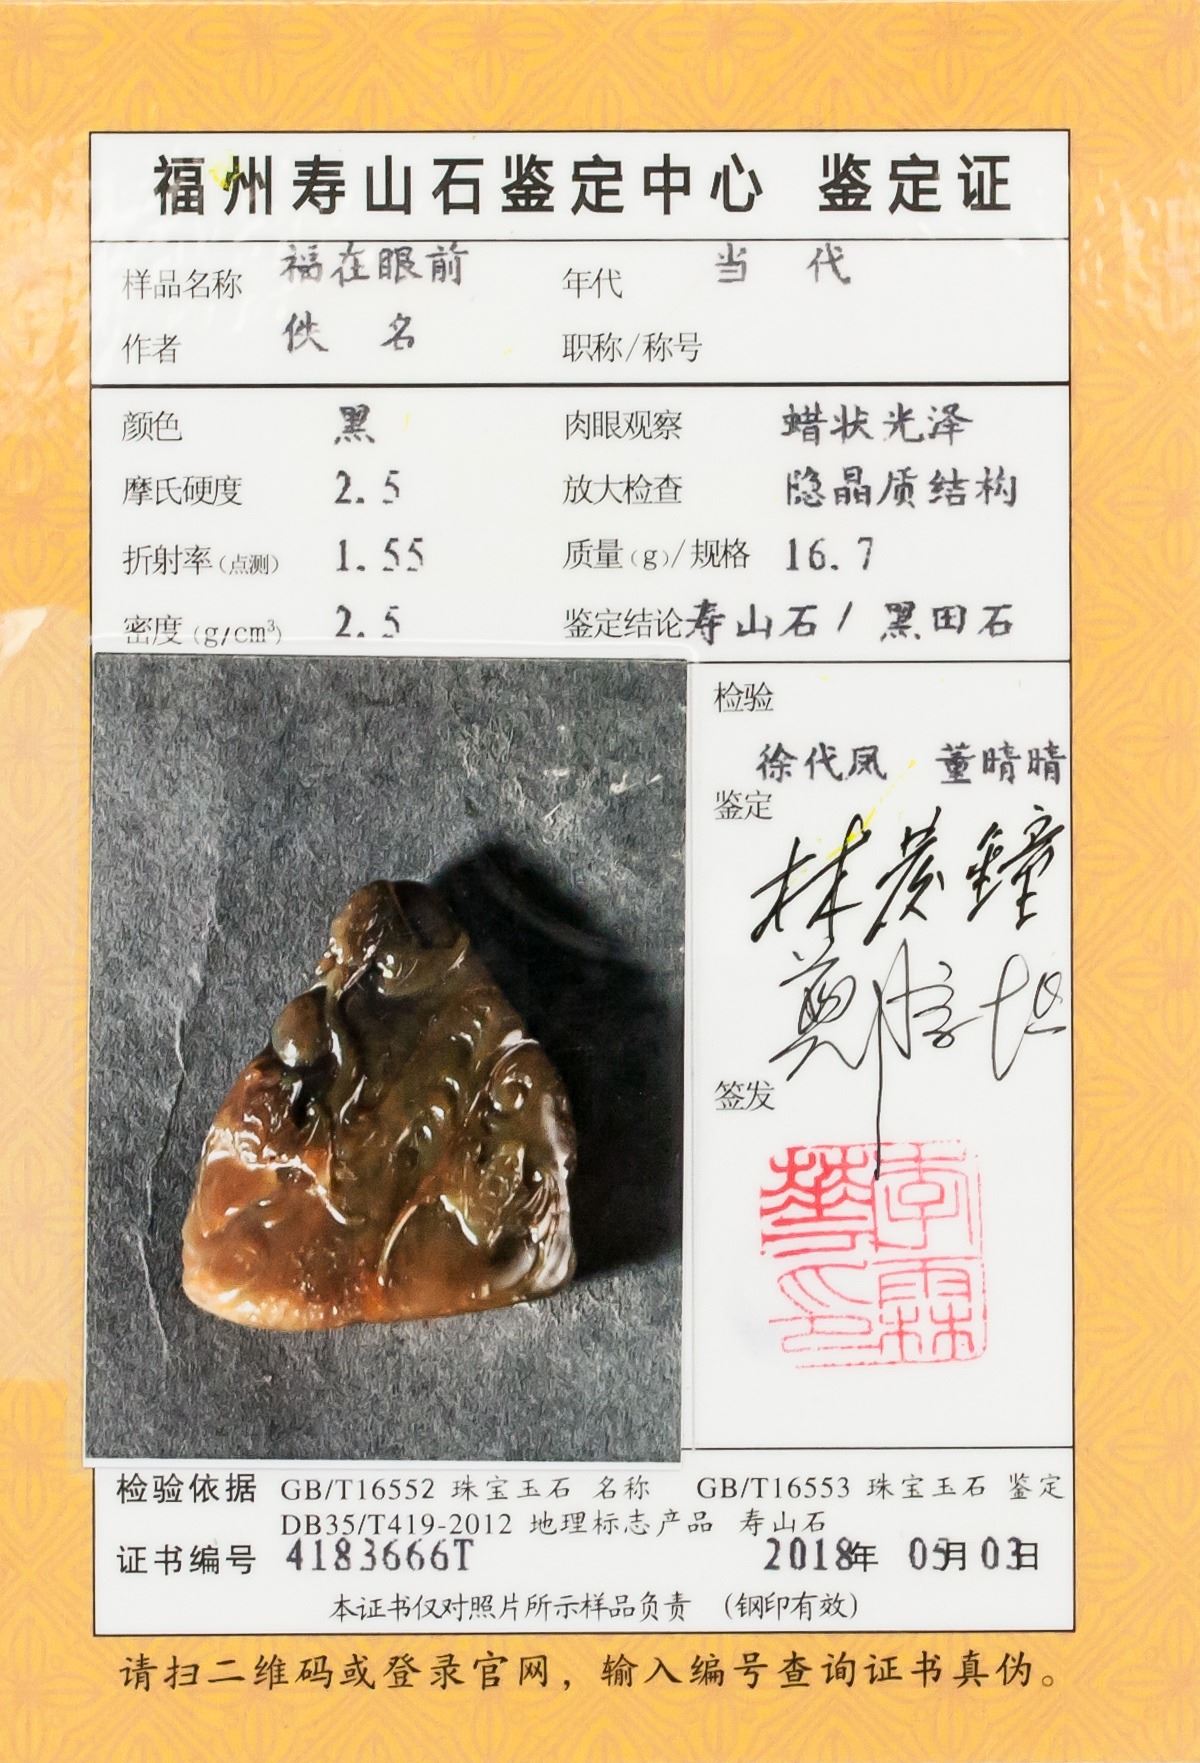 福州寿山石鉴定中心 鉴定证
样品名称 福在眼前 年代 当 代
作者 佚 名 职称/称号
颜色 黑 肉眼观察 蜡状光泽
摩氏硬度 2.5 放大检查 隐晶质结构
折射率(点测) 1.55 质量(g)/规格 16.7
密度(g/cm³) 2.5 鉴定结论 寿山石/黑田石
检验
徐代凤 董晴晴
鉴定
签发
检验依据 GB/T16552 珠宝玉石 名称 GB/T16553 珠宝玉石 鉴定
DB35/T419-2012 地理标志产品 寿山石
证书编号 4183666T 2018年 05月03日
本证书仅对照片所示样品负责 (钢印有效)
请扫二维码或登录官网，输入编号查询证书真伪。